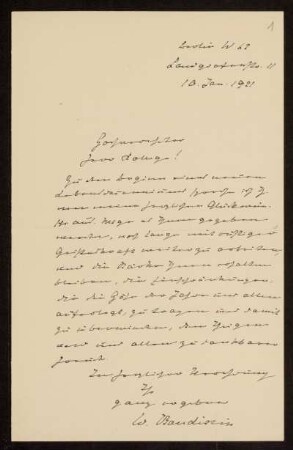 1
Berlin W 62
Landgrafenstr. 11
10. Jan. 1921
Hochverehrter
Herr Kollege!
Zu dem Beginn eines neuen
Lebensdecenniums spreche ich
Ihnen meine herzlichen Glückwünsche
aus. Möge es Ihnen gegeben
werden, noch lange mit rüstiger
Geisteskraft weiter zu arbeiten,
und die Stärke Ihnen erhalten
bleiben, die Einschränkungen,
die die Höhe der Jahre uns allen
auferlegt, zu tragen und damit
zu überwinden, den Ihrigen
und uns allen zu dankbarer
Freude.
In herzlicher Verehrung
Ihr
ganz ergebener
W. Baudissin